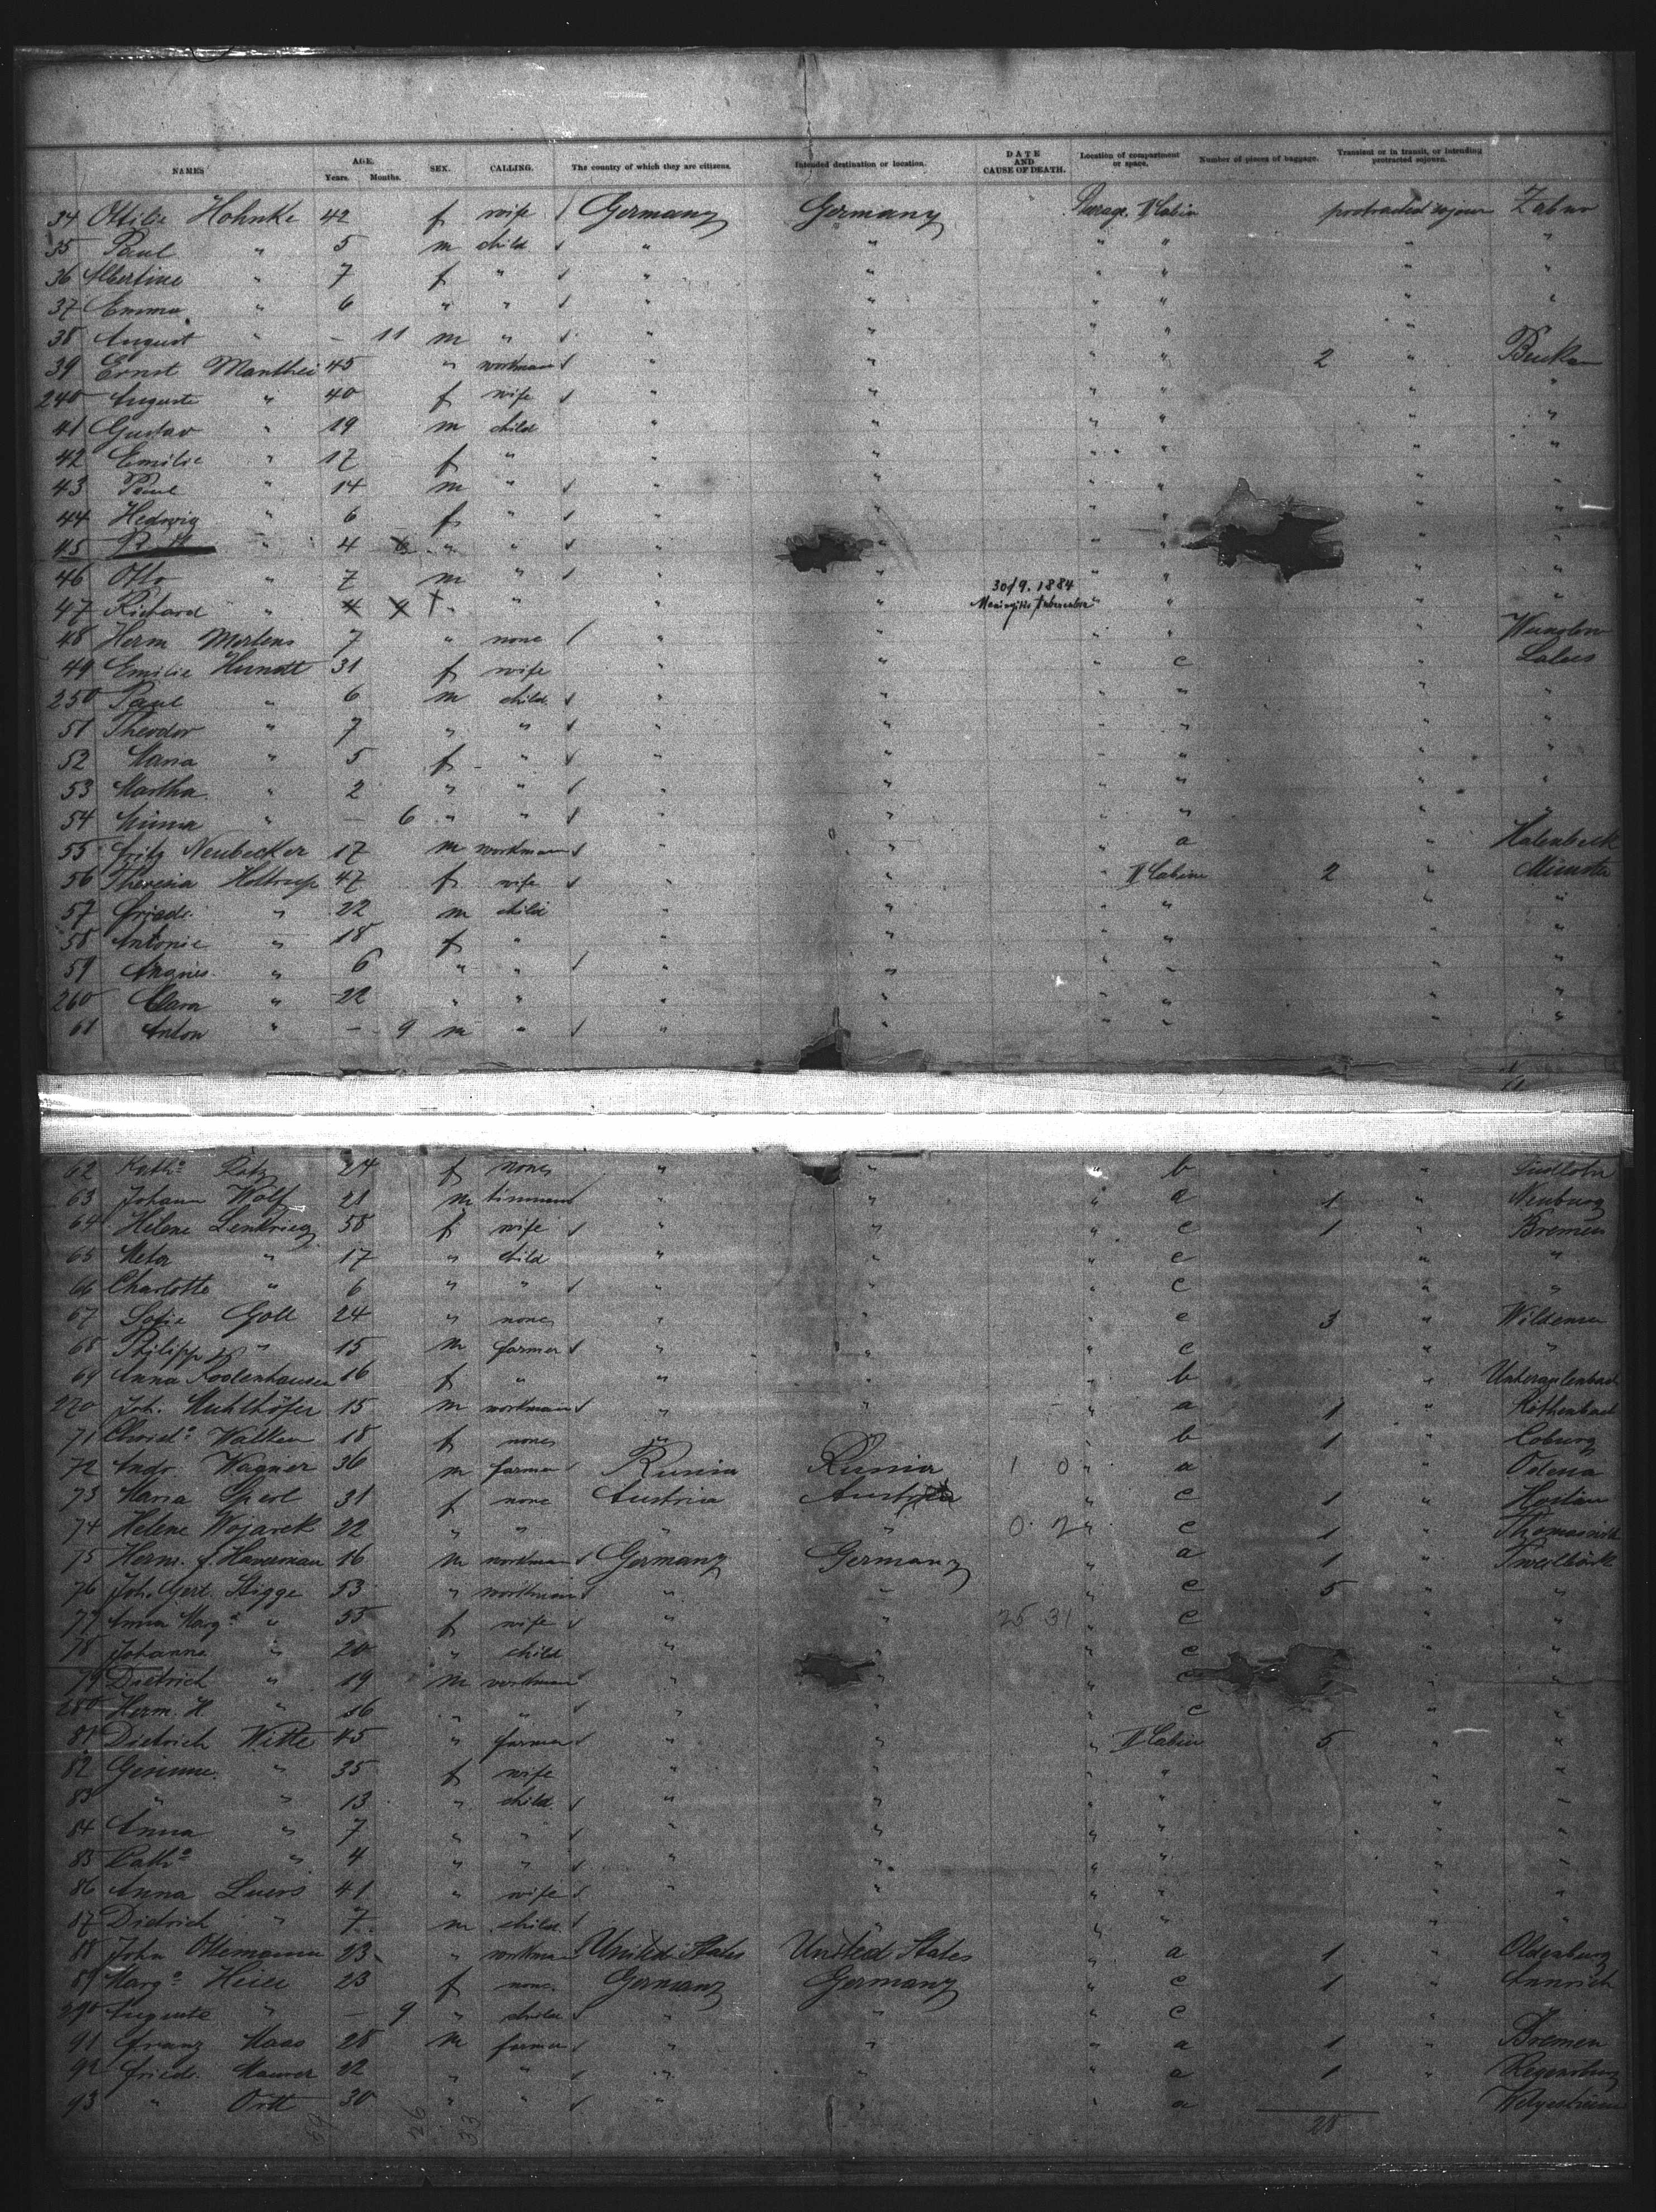 NAMES AGE. Years. Months. SEX. CALLING. The country of which they are citizens. Intended destination or location. DATE AND CAUSE OF DEATH. Location of compartment or space. Number of pieces of baggage. Transient or in transit, or intending protracted sojourn.
34 Ottilie Hohnke 42 f wife Germany Germany Steerage. II Cabin protracted sojourn
35 Paul " 5 m child " " " " " "
36 Albertine " 7 f " " " " " " "
37 Emma " 6 " " " " " " " "
38 August " – 11 m " " " " " " "
39 Ernst Manthei 45 " workman " " " " 2 "
240 Auguste " 40 f wife " " " " " "
41 Gustav " 19 m child " " " " " "
42 Emilie " 17 f " " " " " " "
43 Paul " 14 m " " " " " " "
44 Hedwig " 6 f " " " " " " "
45 " 4 " " " " " " "
46 Otto " 7 m " " " " " " "
47 Richard " 4 † " " " " 30/9. 1884 Meningitis tuberculosa " " " "
48 Herm Mertens 7 " none " " " " "
49 Emilie 31 f wife " " " c "
250 Paul " 6 m child " " " " " "
51 Theodor " 7 " " " " " " " "
52 Maria " 5 f " " " " " " "
53 Martha " 2 " " " " " " " "
54 Minna " – 6 " " " " " " " "
55 Fritz Neubecker 17 m workman " " " a " Halenbeck
56 Theresia Holtrup 47 f wife " " II Cabin 2 " Münster
57 Friedr. " 22 m child " " " " " "
58 Antonie " 18 f " " " " " " "
59 Agnes " 6 " " " " " " " "
260 Clara " 22 " " " " " " " "
61 Anton " – 9 m " " " " " " "
62 Kath^a 24 f none " " " b "
63 Johann Wolf 21 m " " " a 1 " Neuburg
64 Helene 58 f wife " " " c 1 " Bremen
65 Meta " 17 " child " " " c "
66 Charlotte " 6 " " " " " c " "
67 Sofie Goll 24 " none " " " c 3 "
68 Philipp " 15 m farmer " " " c " "
69 Anna 16 f " " " " b "
270 Joh. Muhlhöfer 15 m workman " " " a 1 " Röthenbach
71 Christ^a Walter 18 f none " b 1 " Coburg
72 Andr. Wagner 36 m farmer Russia Russia 1 0 " a " Odessa
73 Maria Sperl 31 f none Austria Austria " c 1 "
74 Helene Wojarek 22 " " " " 0 2 " c 1 "
75 Herm. f. Haverman 16 m workman Germany Germany " a 1 "
76 Joh. Gert. Stigge 53 " workman " " " c 5 " "
77 Anna Marg^a " 55 f wife " " 25 31 " c "
78 Johanna " 20 " child " " c "
79 Dietrich " 19 m workman " " " c " "
280 Herm. H. " 16 " " " " " c " "
81 Dietrich Witte 45 " farmer " " " II Cabin 5 " "
82 Gesine " 35 f wife " " " " " "
83 " " 13 " child " " " " " "
84 Anna " 7 " " " " " " " "
85 Cath^a " 4 " " " " " " " "
86 Anna Luers 41 " wife " " " " " "
87 Dietrich " 7 m child " " " " " "
88 John Ottemann 23 " workman United States United States " a 1 " Oldenburg
89 Marg^a 23 f none Germany Germany " c 1 "
290 Auguste " – 9 " child " " " c " "
91 Franz Haas 28 m farmer " " " a 1 " Bremen
92 Friedr. Maurer 22 " " " " " a 1 " Regensburg
93 " Ortt 30 " " " " " a "
26 33 28